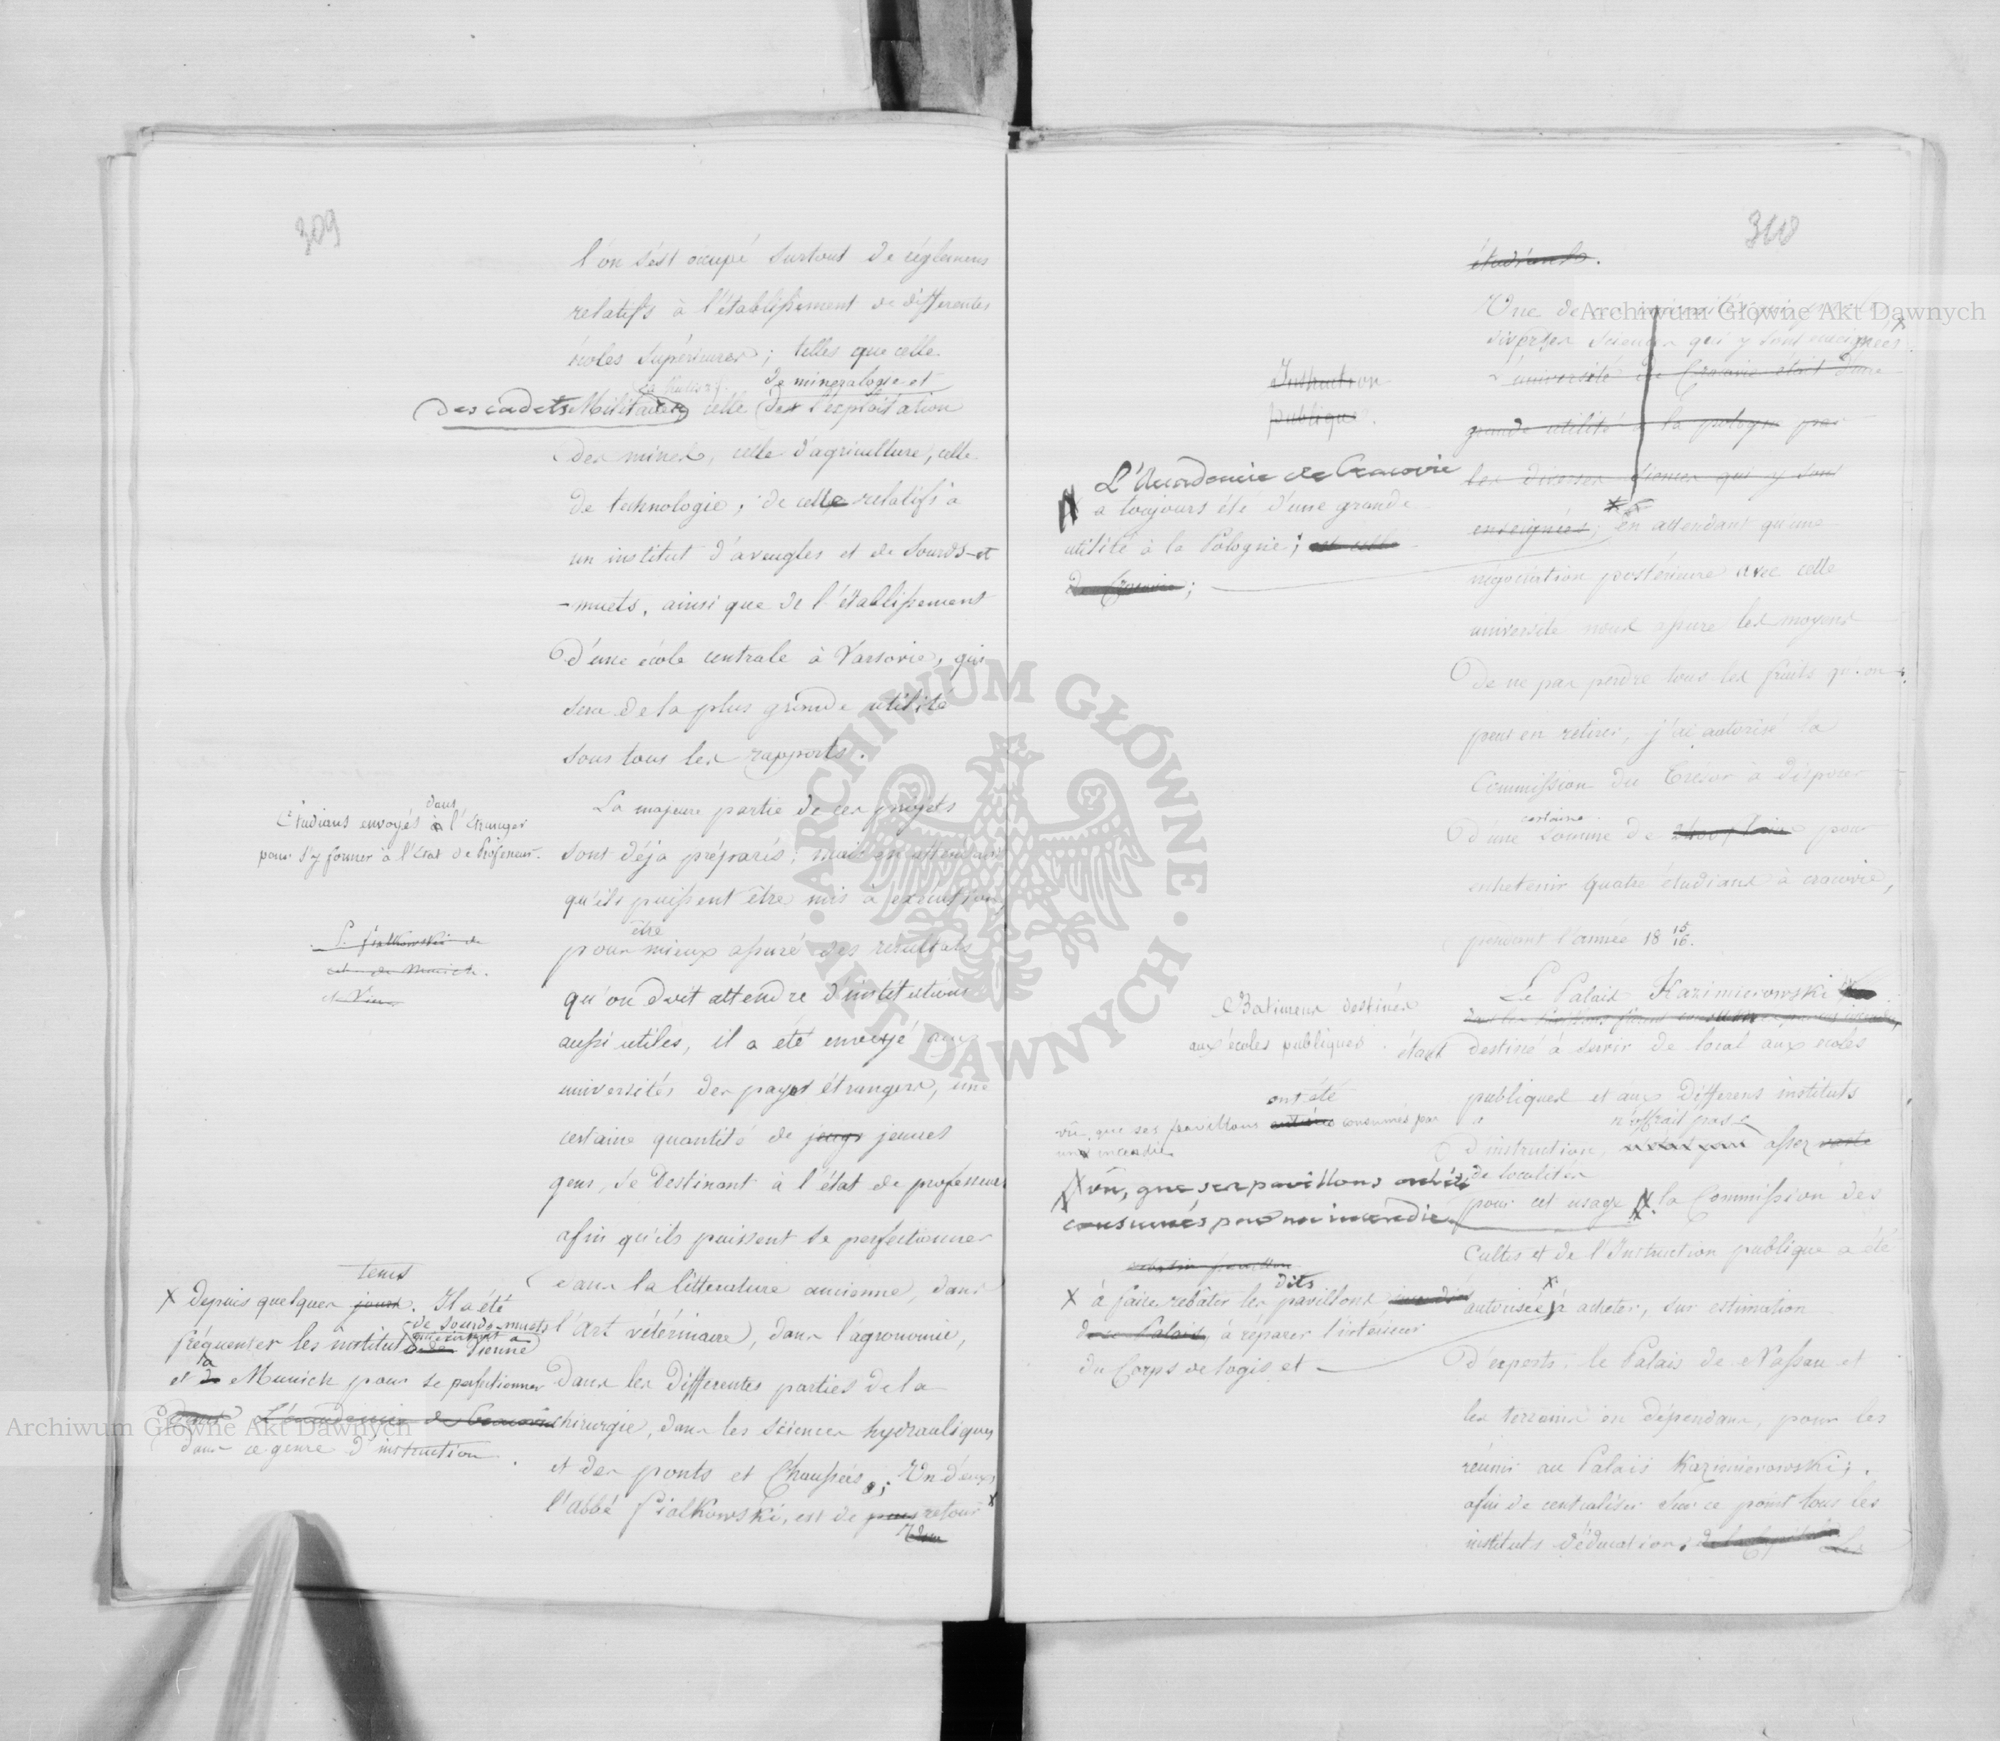 309
l'on s'est occupé surtout de réglemens
relatifs à l'établissement de differentes
écoles Supérieures; telles que celle
de mineralogie et
des cadets Militaires celle des l'exploitation
des mines, celle d'agriculture, celle
de technologie; de celle relatifs à
un institut d'aveugles et de Sourds-et
-muets, ainsi que de l'établissement
d'une école centrale à Varsovie, qui
sera de la plus grande utilité
sous tous les rapports.
Etudians envoyés à dans l'étranger
pour s'y former à l'état de Professeur.
La majeure partie de ces projets
sont déja préparés; mais en attendant
qu'ils puissent être mis à exécution,
P. Fialkowski de
et de Munich.
et Vien
être
pour mieux assuré des resultats
qu'on doit attendre d'institutions
aussi utiles, il a été envoyé aux
universités des pays étrangers, une
certaine quantité de jeunes
gens, se destinant à l'état de professeur
afin qu'ils puissent se perfectionner
dans la litterature ancienne, dans
l'art vétérinaire, dans l'agronomie,
dans les differentes parties de la
chirurgie, dans les sciences hydrauliques
et des ponts et Chaussées; Un d'eux
l'abbé Fialkowski, est de retour x
tems
x depuis quelques jours. Il a été
de Sourds-muets
fréquenter les institut Vienne
et à Munich pour se perfectionner
L'académie de Cracovie
dans ce genre d'instruction.
310
étudiants.
Une de
diverses sciences qui y sont enseignées x
Instruction
publique.
L'université de Cracovie était d'une
grande utilité à la pologne par
les diverses siences qui y sont
enseignées; en attendant qu'une
L'Academie de Cracovie
a toujours été d'une grande
utilité à la Pologne; et celle
de Cracovie;
négociation postérieure avec cette
université nous assure les moyens
de ne pas perdre tous les fruits qu'on
peut en retirer, j'ai autorisé la
Commission du Trésor à disposer
certaine
d'une Somme de pour
entretenir quatre étudians à cracovie,
pendant l'année 18 15/16.
Le Palais Kazimierowski
Batimens destinés
aux écoles publiques.
étant destiné à servir de local aux écoles
publiques et aux differens instituts
n'offrait pas
d'instruction, assez vaste
de localités
pour cet usage x. la Commission des
Cultes et de l'Instruction publique a été
autorisée x à acheter, sur estimation
d'experts, le Palais de Nassau et
les terrains en dépendans, pour les
réunir au Palais Kazimierowski;
afin de centraliser sur ce point tous les
instituts d'éducation;
ont été
vû que ses pavillons consumés par
un incendie
x vû, que ses pavillons ont été
consumés par un incendie
x à faire rebâtir les dits pavillons
de ce Palais, à réparer l'intérieur
du Corps de logis, et
Archiwum Główne Akt Dawnych
Archiwum Główne Akt Dawnych
ARCHIWUM GŁÓWNE AKT DAWNYCH